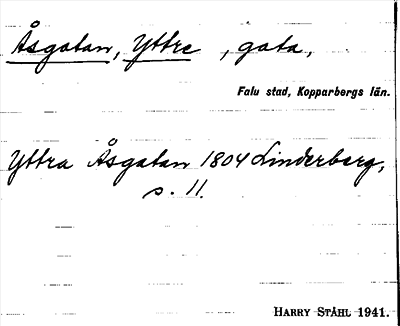 Åsgatan, Yttre, gata,
Falu stad, Kopparbergs län.
Yttra Åsgatan 1804 Linderberg,
s. 11.
HARRY STÅHL 1941.